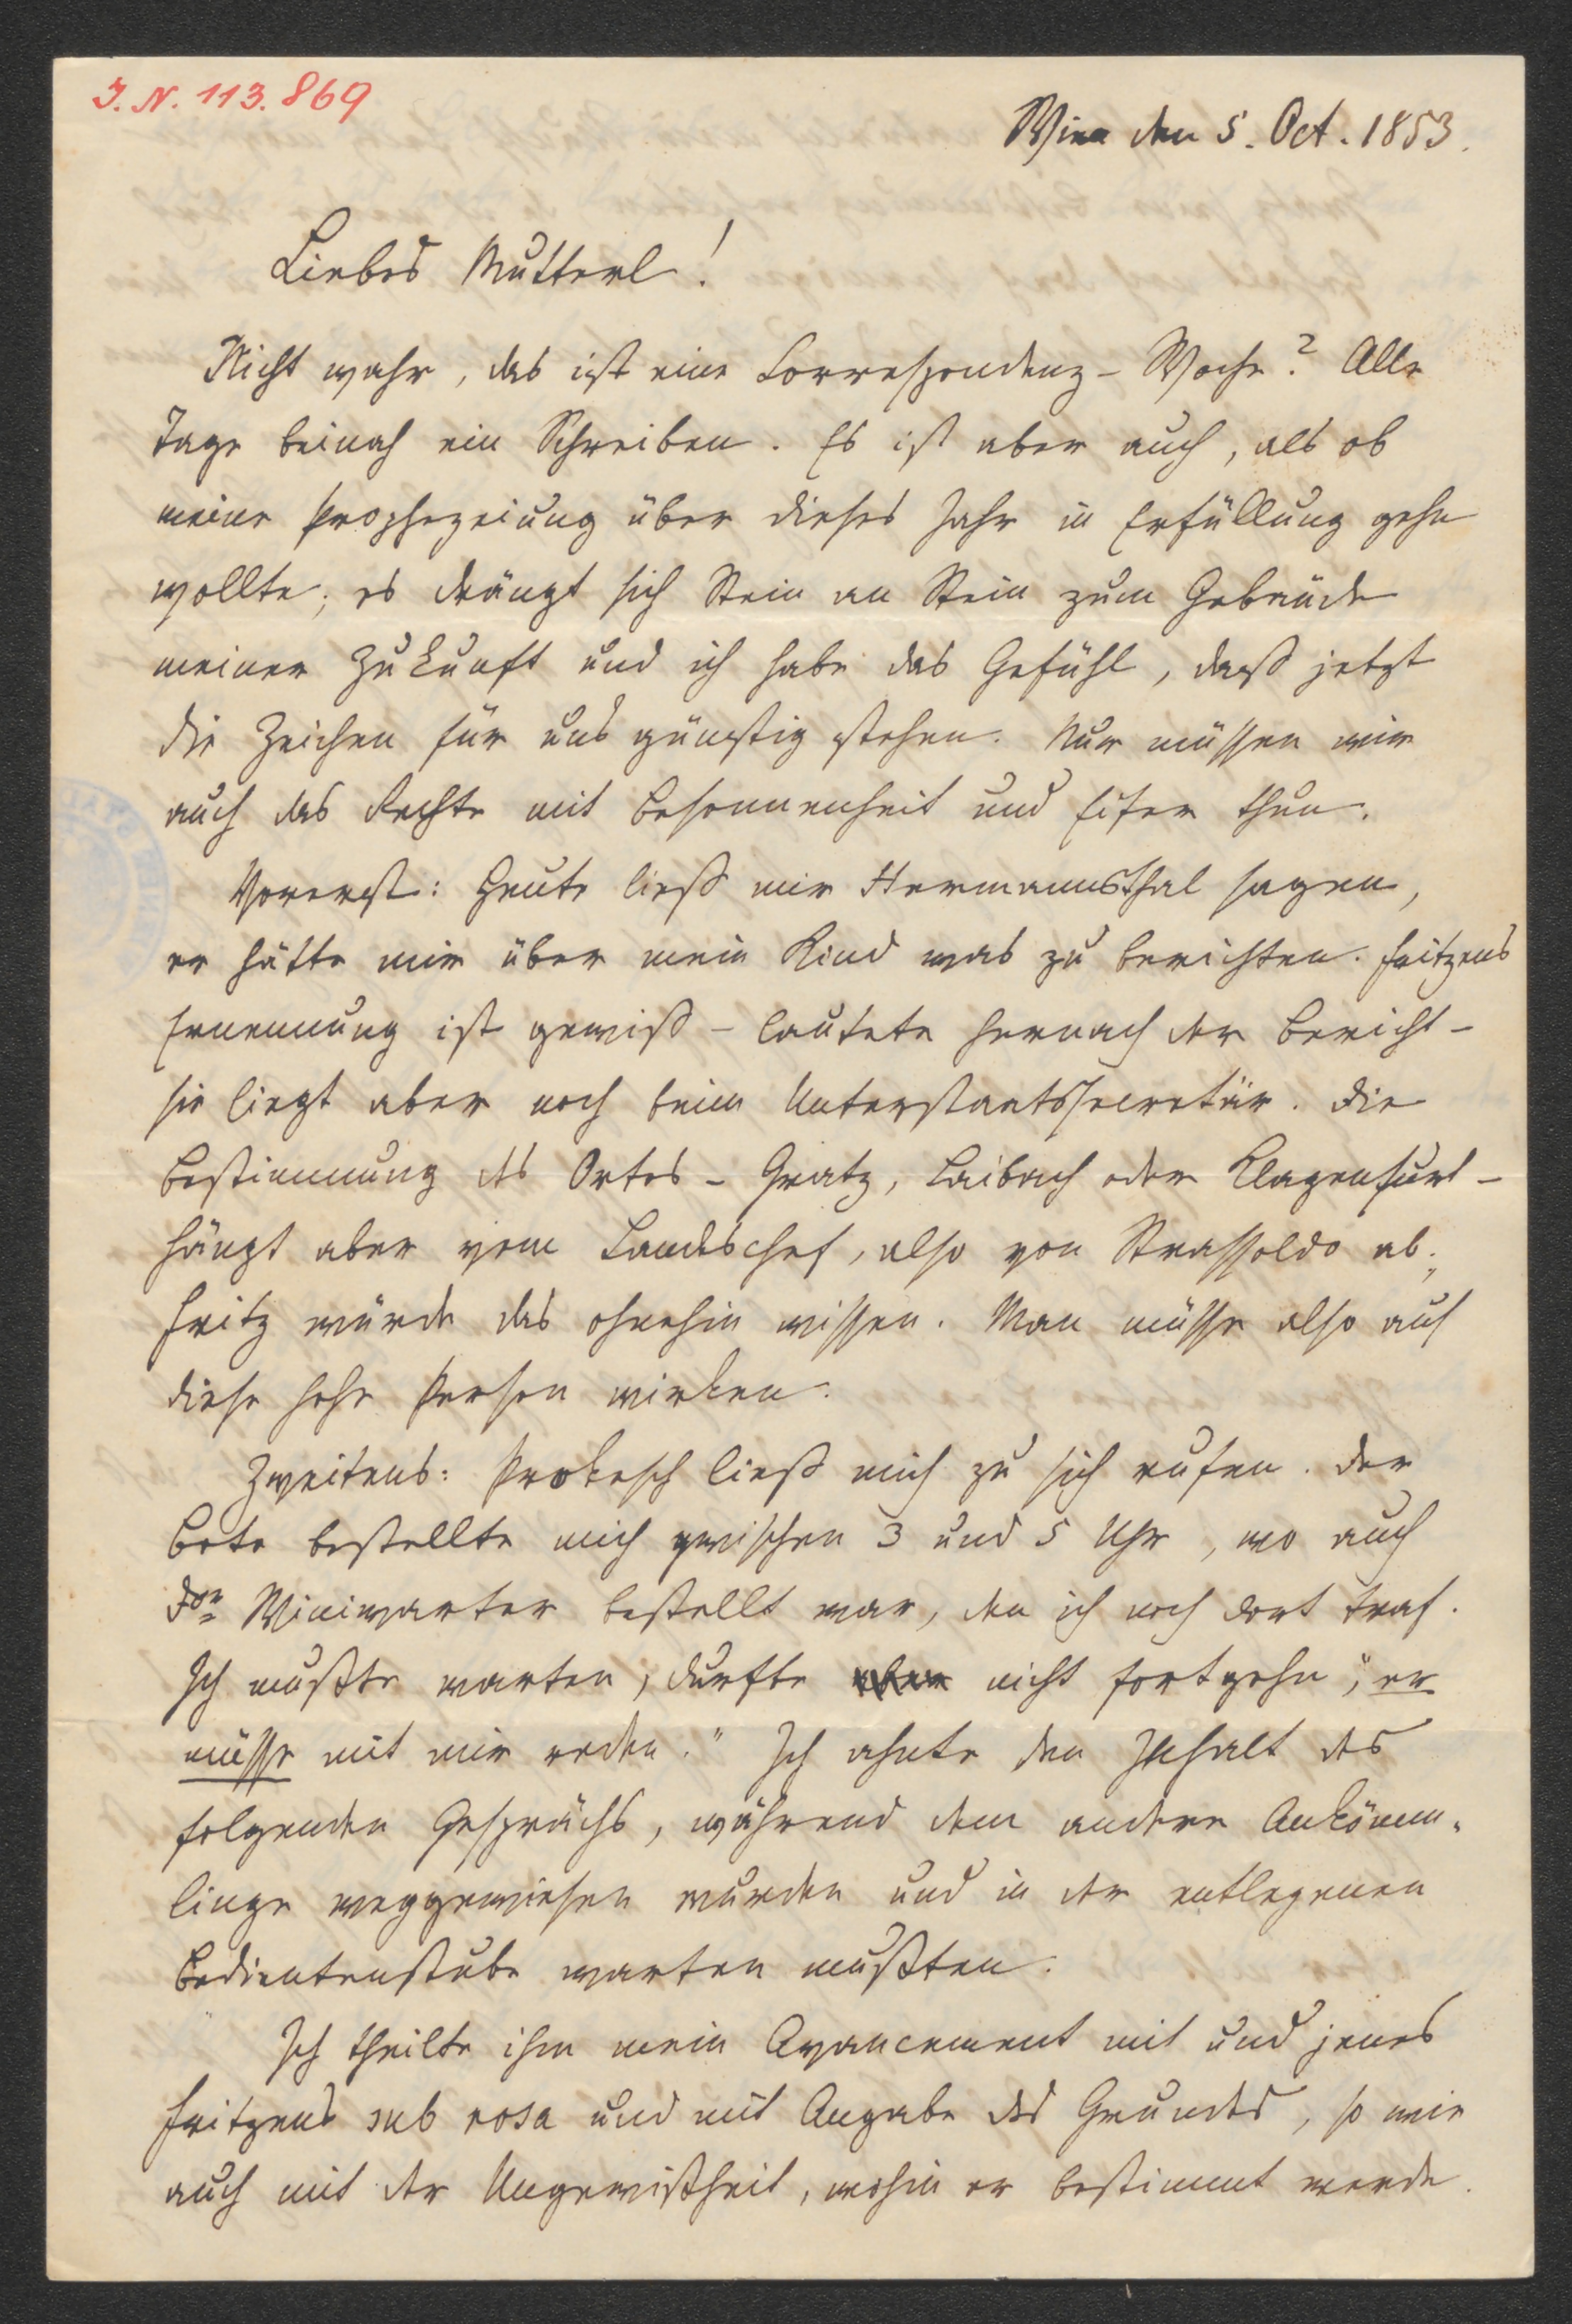 I. N. 113.869
Wien den 5. Oct. 1853.
Liebes Mutterl!
Nicht wahr, das ist eine Correspondenz-Woche? Alle
Tage beinah ein Schreiben. Es ist aber auch, als ob
meine Prophezeiung über dieses Jahr in Erfüllung gehn
wollte; es drängt sich Stein an Stein zum Gebäude
meiner Zukunft und ich habe das Gefühl, daß jetzt
die Zeichen für uns günstig stehen. Nur müssen wir
auch das Rechte mit Besonnenheit und Eifer thun.
Vorerst: Heute ließ mir Hermannsthal sagen,
er hätte mir über mein Kind was zu berichten. Fritzens
Ernennung ist gewiß – lautete hernach der Bericht –
sie liegt aber noch beim Unterstaatssecretär. Die
Bestimmung des Ortes – Gratz, Laibach oder Klagenfurt –
hängt aber vom Landeschef, also von Strassoldo ab;
Fritz würde das ohnehin wissen. Man müsse also auf
diese hohe Person wirken.
Zweitens: Prokesch ließ mich zu sich rufen. Der
Bote bestellte mich zwischen 3 und 5 Uhr, wo auch
Dor Winiwarter bestellt war, den ich noch dort traf.
Ich mußte warten, durfte aber nicht fortgehn, "er
müsse mit mir reden." Ich ahnte den Inhalt des
folgenden Gesprächs, während dem andere Ankömm-
linge weggewiesen wurden und in der entlegenen
Bedientenstube warten mußten.
Ich theilte ihm mein Avancement mit und jenes
Fritzens sub rosa und mit Angabe des Grundes, so wie
auch mit der Ungewißheit, wohin er bestimmt werde.